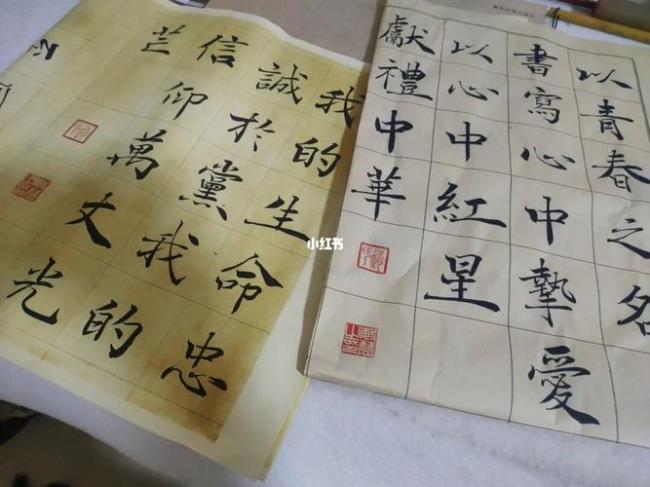 以青春之名
書寫心中摯愛
以心中紅星
獻禮中華
我的生命忠
誠於黨我的
信仰萬丈光
芒
小红书